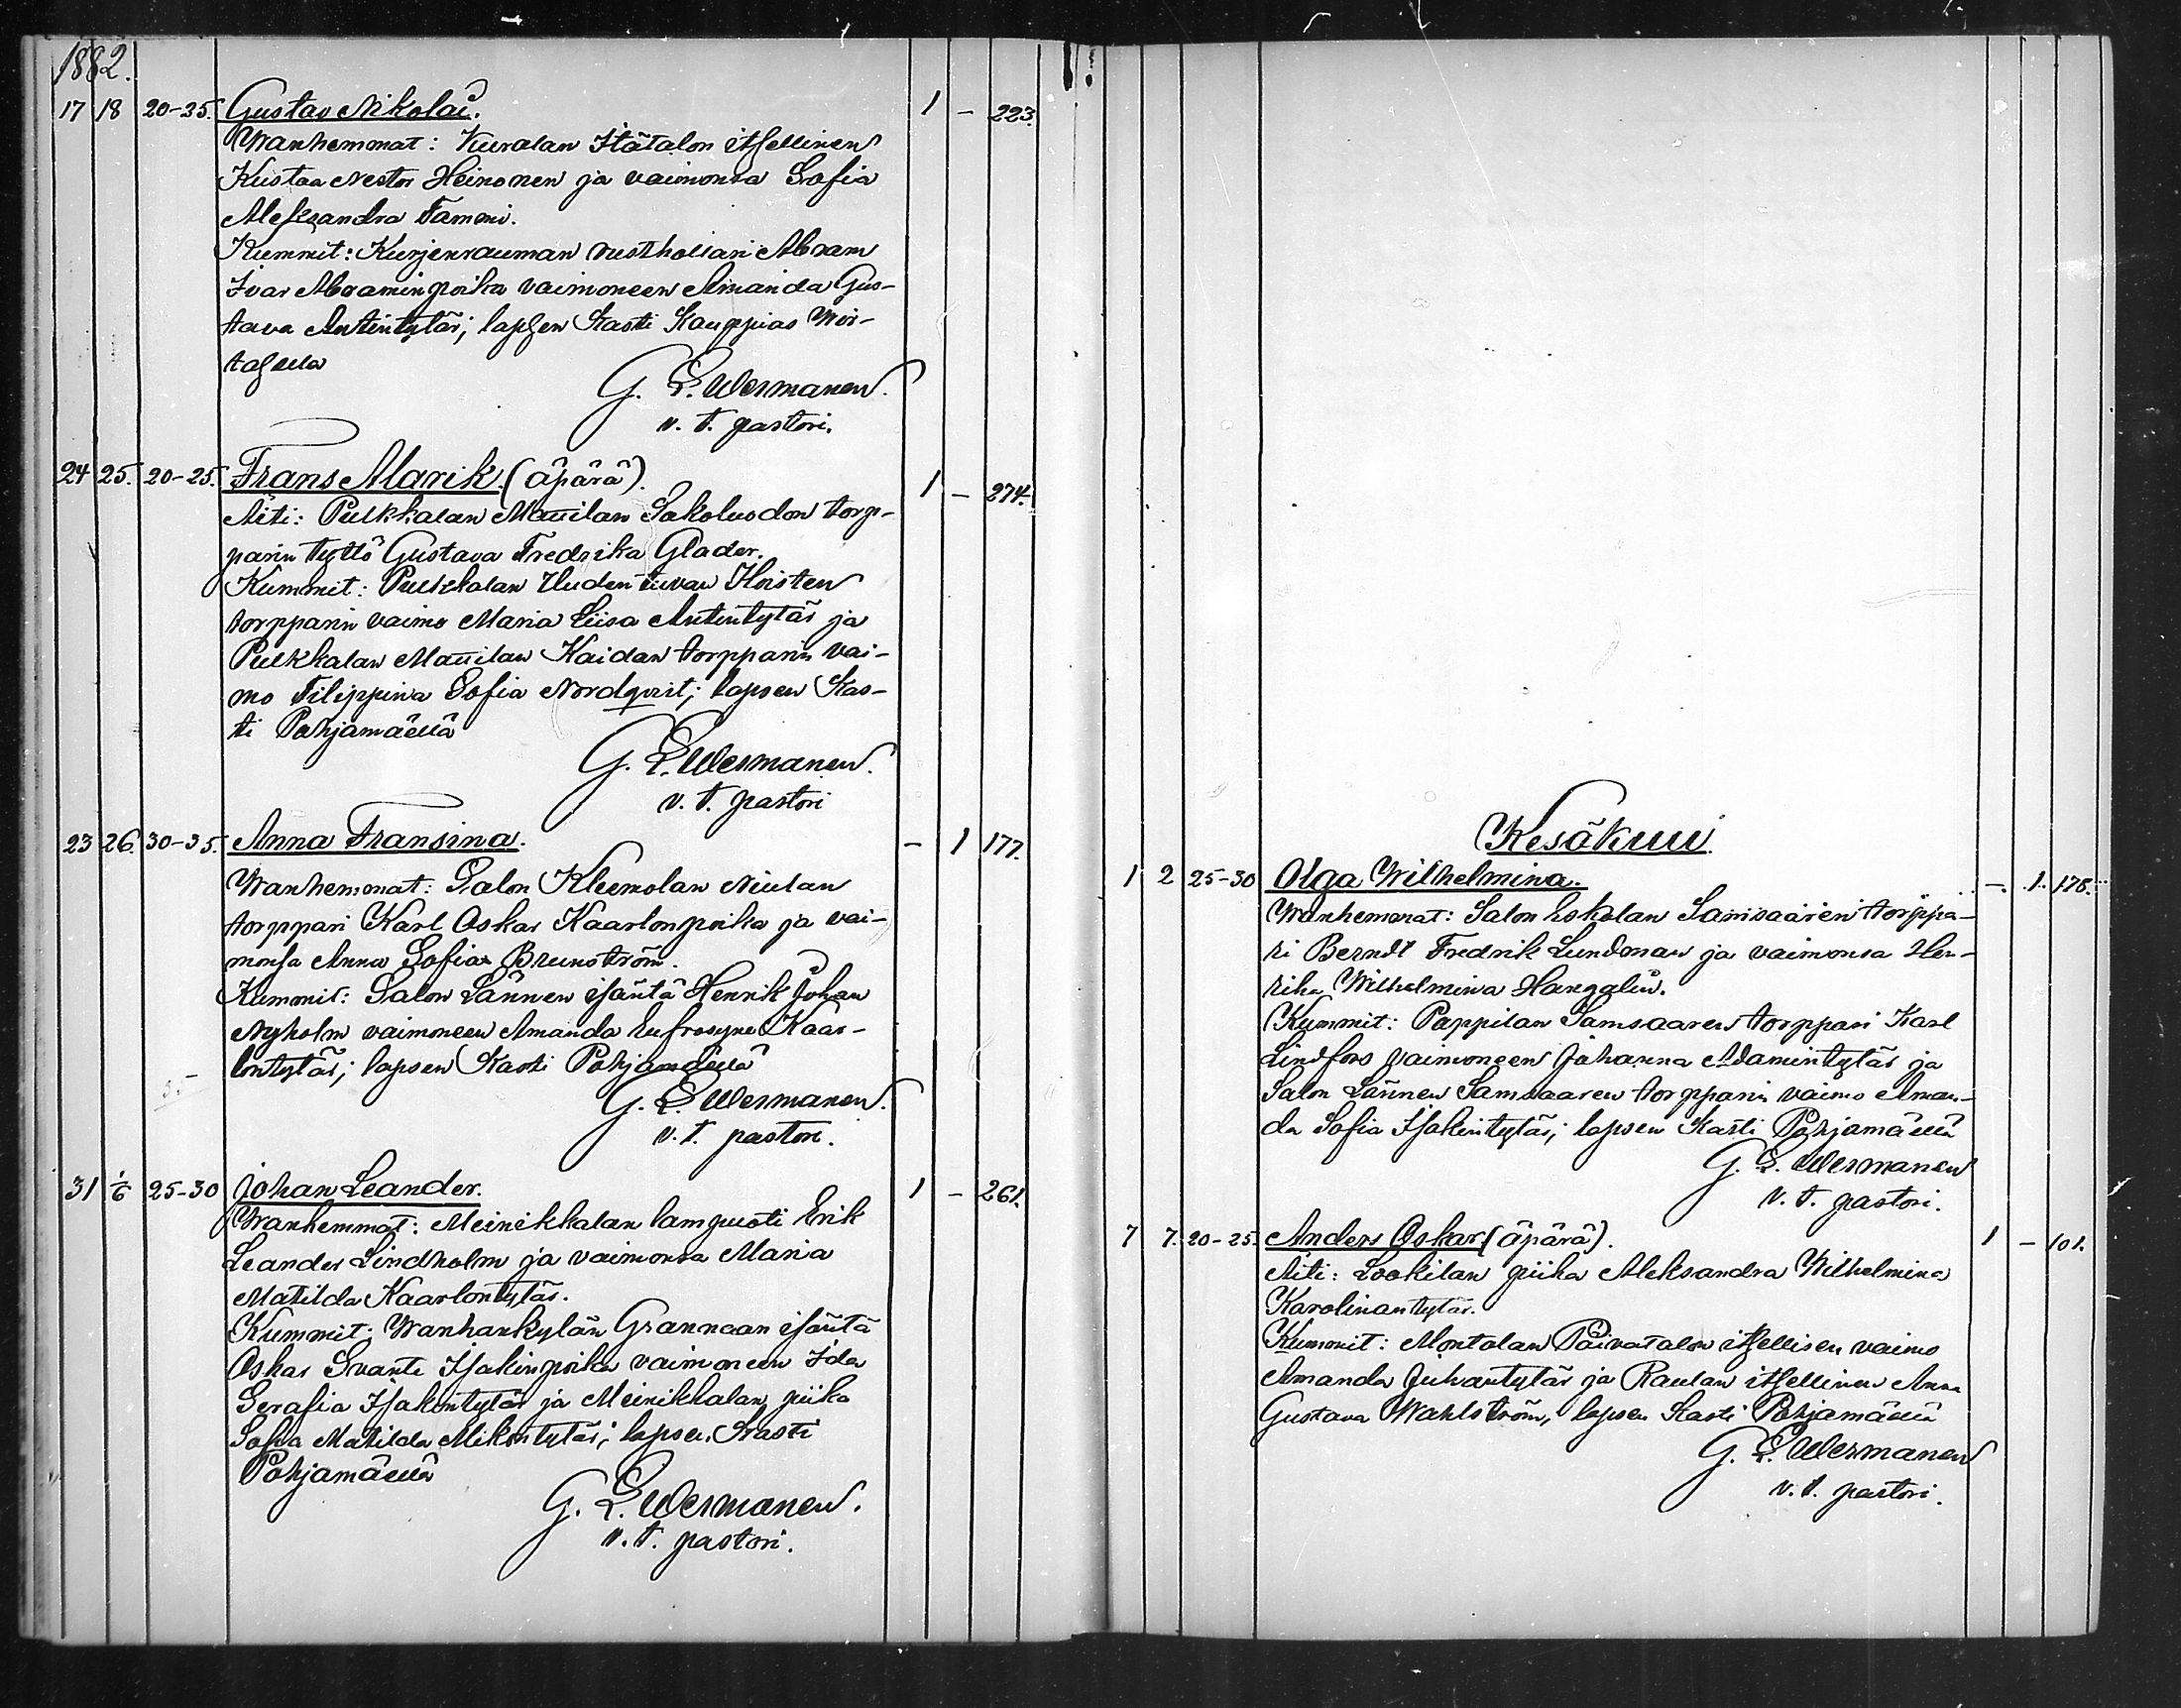 1882.
17 18 20-35. Gustav Nikolai. 1 - 223.
Wanhemmat: Kuralan Itätalon itsellinen
Kustaa Nestor Heinonen ja vaimonsa Sofia
Aleksandra Tammi.
Kummit: Kurjenrauman rusthollari Abram
Ivar Abraminpoika vaimoneen Amanda Gus-
tava Antintytär; lapsen kasti Kauppias Wir-
G. E. Wermanen.
v. t. pastori.
24 25. 20-25. Frans Alarik. (äpärä). 1 - 274.
Äiti: Pulkkalan Maunilan Sakoluodon torp-
parin tyttö Gustava Fredrika Glader.
Kummit: Pulkkalan Uudentuvan Hoisten
torpparin vaimo Maria Liisa Antintytär ja
Pulkkalan Maunilan Kaidan torpparin vai-
mo Filippina Sofia Nordqvist; lapsen kas-
ti Pohjamäellä
G. E. Wermanen.
v. t. pastori
23 26. 30-35. Anna Fransina. - 1 177.
Wanhemmat: Salon Kleemolan Niulan
torppari Karl Oskar Kaarlonpoika ja vai-
monsa Anna Sofia Brunström.
Kummit: Salon Lännen isäntä Henrik Johan
Nyholm vaimoneen Amanda Eufrosyne Kaar-
lontytär; lapsen kasti Pohjamäellä
G. E. Wermanen.
v. t. pastori.
31 1/6 25-30 Johan Leander. 1 - 261.
Wanhemmat: Meinikkalan lampuoti Erik
Leander Lindholm ja vaimonsa Maria
Matilda Kaarlontytär.
Kummit: Wanhankylän Grannaan isäntä
Oskar Svante Isakinpoika vaimoneen Ida
Serafia Isakintytär ja Meinikkalan piika
Sofia Matilda Mikontytär; lapsen kasti
Pohjamäellä
G. E. Wermanen.
v. t. pastori.
Kesäkuu
1 2 25-30 Olga Wilhelmina. - 1 178.
Wanhemmat: Salon Iskolan Samsaaren torppa-
ri Berndt Fredrik Lundman ja vaimonsa Hen-
rika Wilhelmina Hangelin.
Kummit: Pappilan Samsaaren torppari Karl
Lindfors vaimoneen Johanna Adamintytär ja
Salon Lännen Samsaaren torpparin vaimo Aman-
da Sofia Isakintytär; lapsen kasti Pohjamäellä
G. E. Wermanen
v. t. pastori.
7 7. 20-25. Anders Oskar. (äpärä). 1 - 101.
Äiti: Lookilan piika Aleksandra Wilhelmina
Karolinantytär.
Kummit: Montolan Päivätalon itsellisen vaimo
Amanda Juhantytär ja Raulan itsellinen Anna
Gustava Wahlström, lapsen kasti Pohjamäellä
G. E. Wermanen
v. t. pastori.